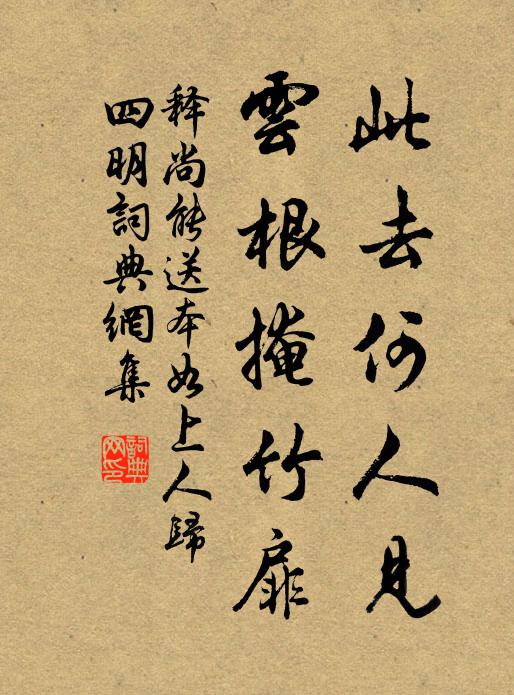 此去何人見
雲根掩竹扉
释尚能送本如上人歸
四明詞典網集
詞典网印